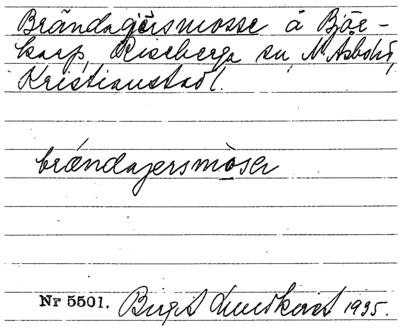 Brändagärsmosse å Björ-
karp, Riseberga sn, N. Åsbohd,
Kristianstad l.
brándagersmòser
Nr 5501. Birgit Lundkvist 1935.